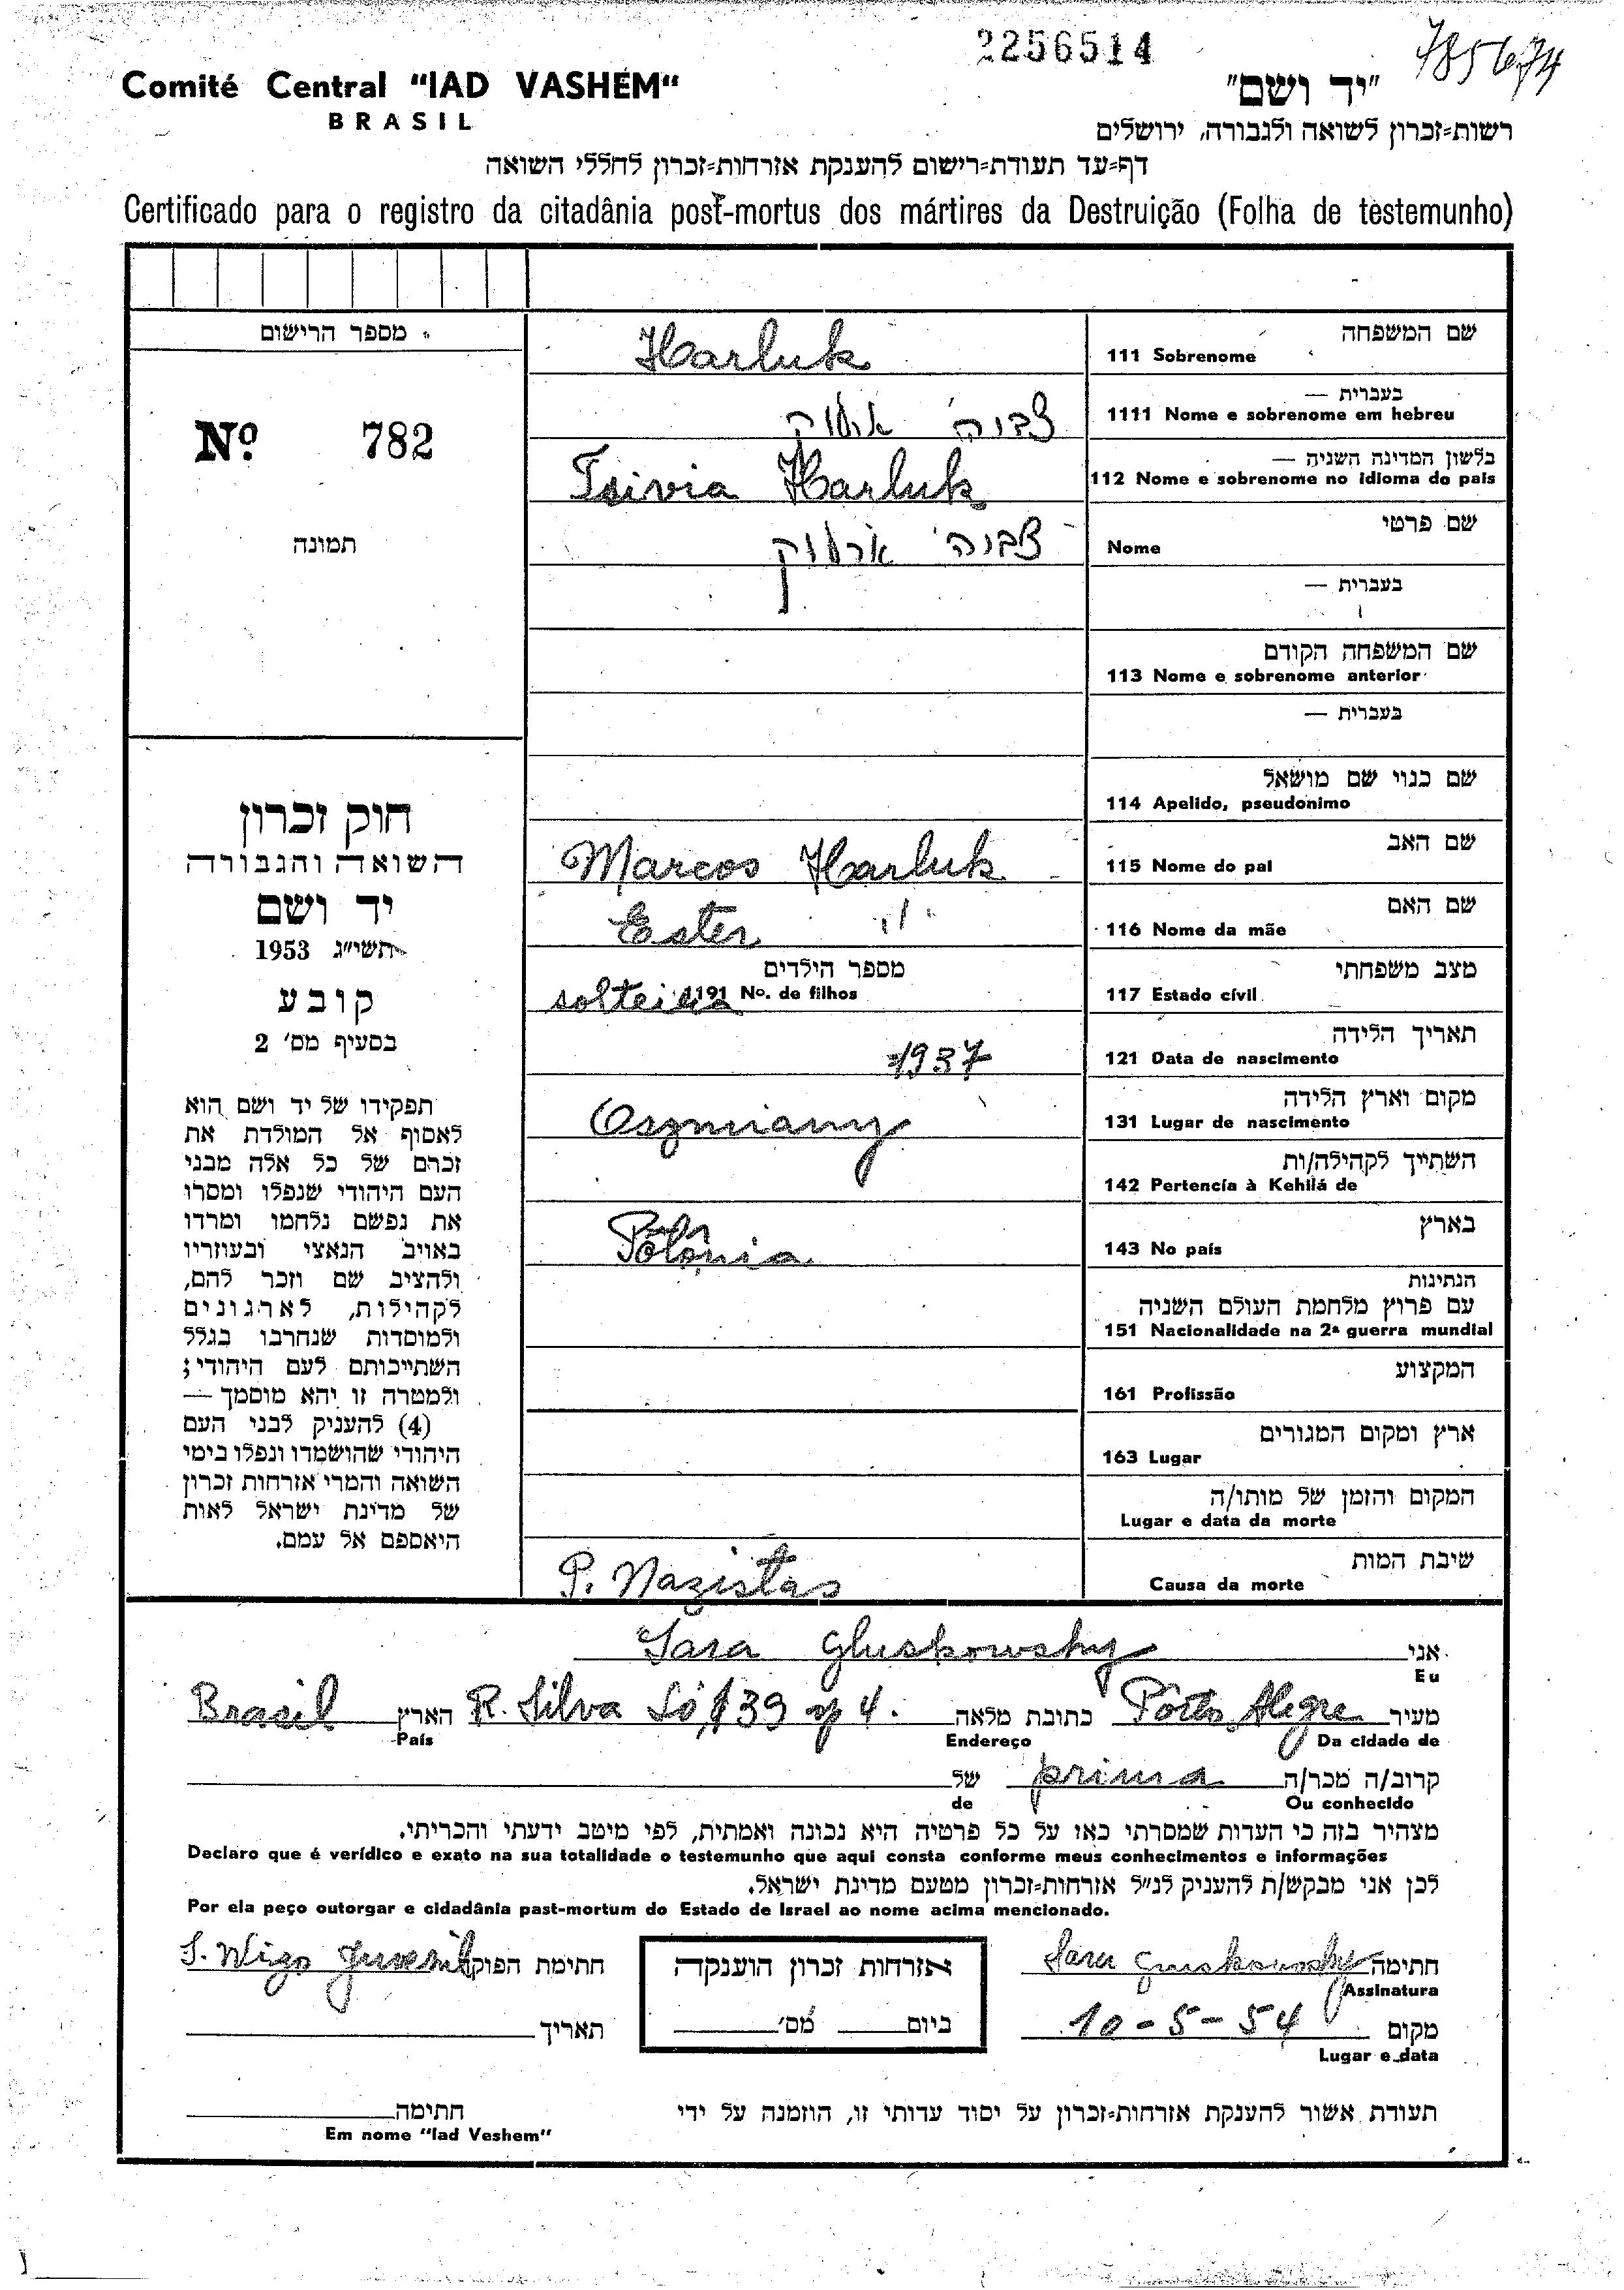 2256514
Comité Central "IAD VASHEM"
BRASIL
"יד ושם"
רשות-זכרון לשואה ולגבורה, ירושלים
דף-עד תעודת-רישום להענקת אזרחות-זכרון לחללי השואה
Certificado para o registro da citadânia post-mortus dos mártires da Destruição (Folha de testemunho)
מספר הרישום
Nº 782
תמונה
חוק זכרון
השואה והגבורה
יד ושם
תשי"ג 1953
קובע
בסעיף מס' 2
תפקידו של יד ושם הוא
לאסוף אל המולדת את
זכרם של כל אלה מבני
העם היהודי שנפלו ומסרו
את נפשם נלחמו ומרדו
באויב הנאצי ובעוזריו
ולהציב שם וזכר להם,
לקהילות, לארגונים
ולמוסדות שנחרבו בגלל
השתייכותם לעם היהודי;
ולמטרה זו יהא מוסמך —
(4) להעניק לבני העם
היהודי שהושמדו ונפלו בימי
השואה והמרי אזרחות זכרון
של מדינת ישראל לאות
היאספם אל עמם.
שם המשפחה
111 Sobrenome
Harluk
בעברית —
1111 Nome e sobrenome em hebreu
צביה
בלשון המדינה השניה —
112 Nome e sobrenome no idioma do país
Tsivia Harluk
שם פרטי
Nome
צביה ארלוק
בעברית —
שם המשפחה הקודם
113 Nome e sobrenome anterior
בעברית —
שם כנוי שם מושאל
114 Apelido, pseudonimo
שם האב
115 Nome do pal
Marcos Harluk
שם האם
116 Nome da mãe
Ester " "
מצב משפחתי
117 Estado cívil
מספר הילדים
1191 Nº. de filhos
solteira
תאריך הלידה
121 Data de nascimento
1937
מקום וארץ הלידה
131 Lugar de nascimento
Oszmiany
השתייך לקהילה/ות
142 Pertencía à Kehilá de
בארץ
143 No país
Polonia
הנתינות
עם פרוץ מלחמת העולם השניה
151 Nacionalidade na 2ª guerra mundial
המקצוע
161 Profissão
ארץ ומקום המגורים
163 Lugar
המקום והזמן של מותו/ה
Lugar e data da morte
שיבת המות
Causa da morte
P. Nazistas
אני
Eu
Sara Gluskowsky
מעיר Pôrto Alegre כתובת מלאה R. Silva Só 139 ap 4. הארץ Brasil
Da cidade de Endereço País
קרוב/ה מכר/ה prima של
Ou conhecido de
מצהיר בזה כי העדות שמסרתי כאן על כל פרטיה היא נכונה ואמתית, לפי מיטב ידעתי והכריתי.
Declaro que é verídico e exato na sua totalidade o testemunho que aqui consta conforme meus conhecimentos e informações
לכן אני מבקש/ת להעניק לנ"ל אזרחות-זכרון מטעם מדינת ישראל.
Por ela peço outorgar e cidadânia past-mortum do Estado de Israel ao nome acima mencionado.
חתימה Sara Gluskowsky
Assinatura
אזרחות זכרון הוענקה
ביום מס'
חתימת הפוקד
מקום 10-5-54
Lugar e data
תאריך
תעודת אשור להענקת אזרחות-זכרון על יסוד עדותי זו, הוזמנה על ידי
חתימה
Em nome "Iad Veshem"